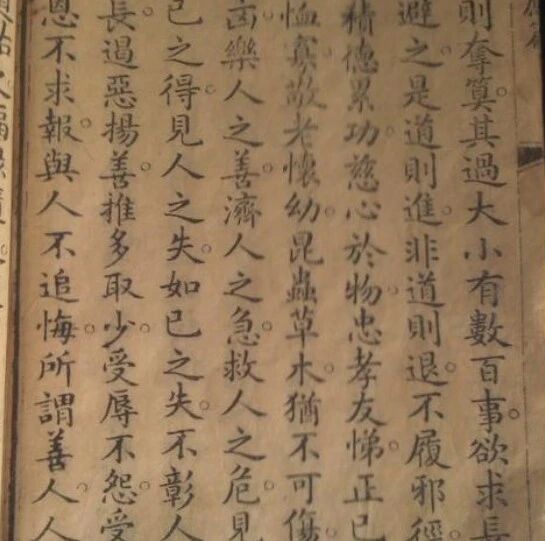 則奪算其過大小有數百事。欲求長
避之。是道則進。非道則退。不履邪徑。
積德累功。慈心於物。忠孝友悌。正己
恤寡。敬老懷幼。昆蟲草木。猶不可傷。
凶樂人之善。濟人之急。救人之危。見
己之得。見人之失。如己之失。不彰人
長。遏惡揚善。推多取少。受辱不怨。受
恩不求報。與人不追悔。所謂善人。人